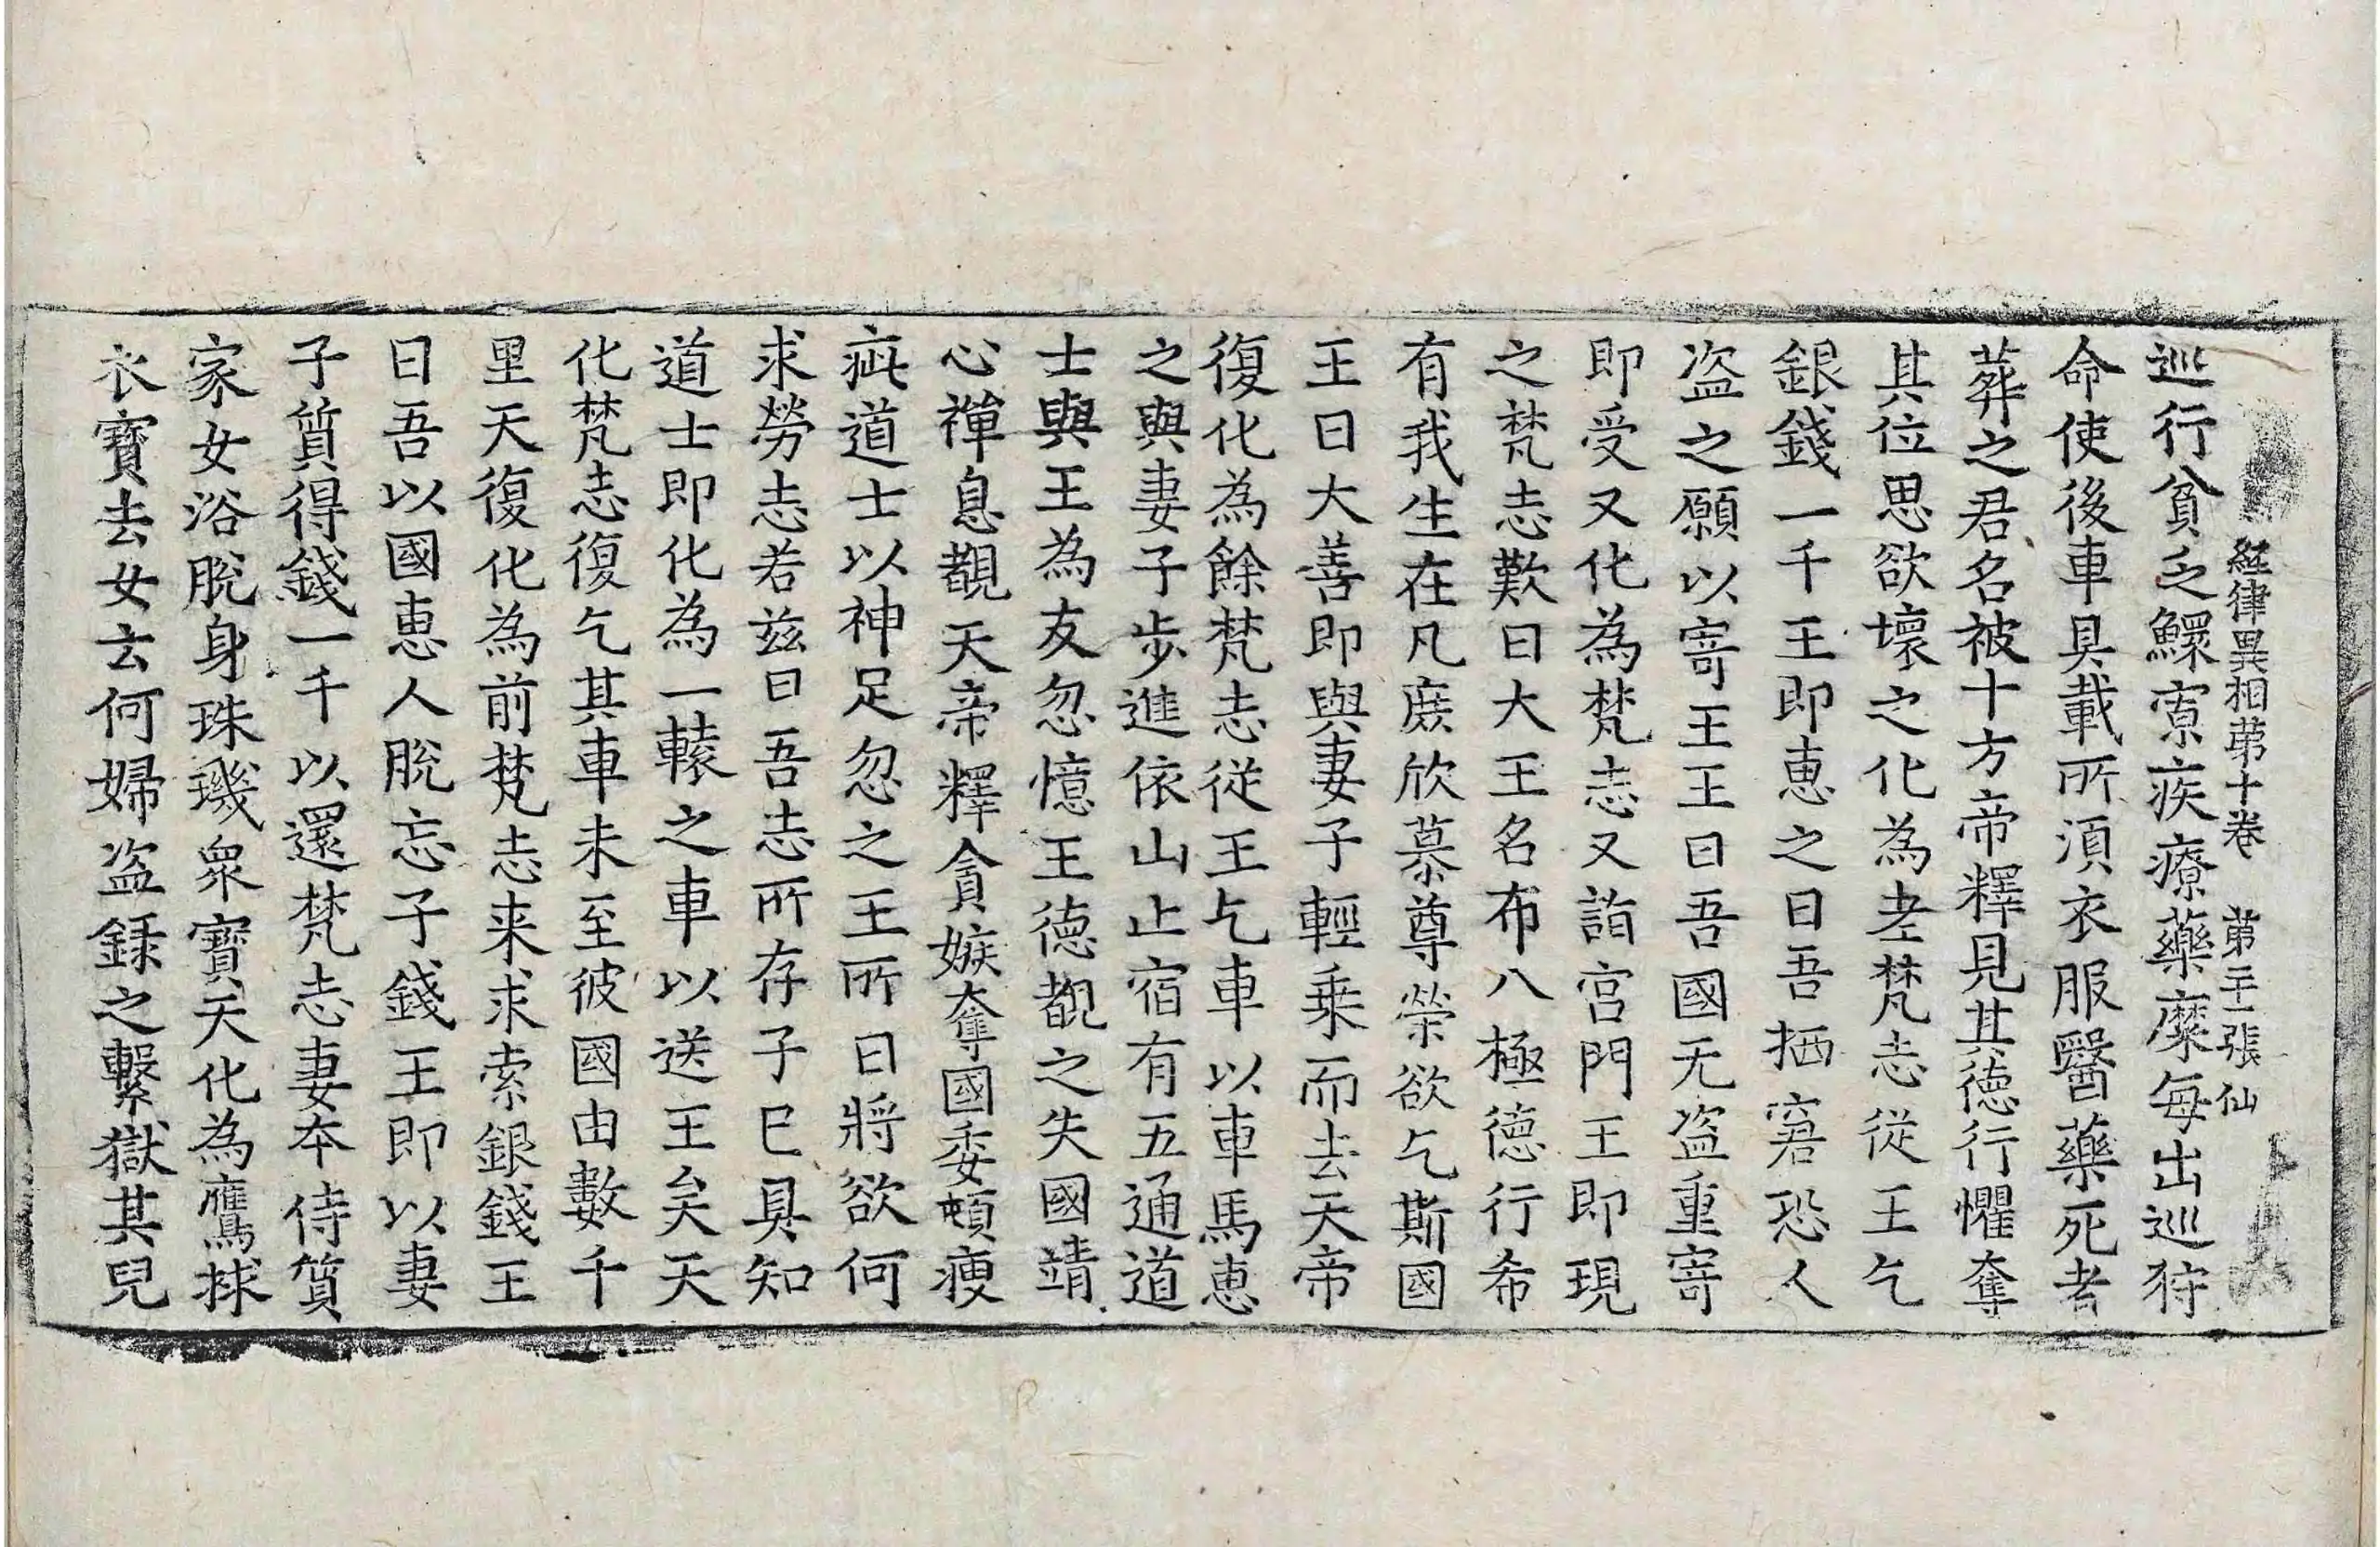 經律異相苐十卷　苐二十一張　仙
巡行貧乏鰥寡疾療藥糜每出巡狩
命使後車具載所湏衣服醫藥死者
葬之君名被十方帝釋見其德行懼奪
其位思欲壞之化為老梵志從王乞
銀錢一千王即惠之曰吾栖窘恐人
盗之願以寄王王曰吾國无盗重寄
即受又化為梵志又詣宫門王即現
之梵志歎曰大王名布八極德行希
有我生在凡庶欣慕尊榮欲乞斯國
王曰大善即與妻子輕乗而去天帝
復化為餘梵志從王乞車以車馬惠
之與妻子步進依山止宿有五通道
士與王為友忽憶王德覩之失國靖
心禪息覩天帝釋貪嫉奪國委頓瘦
疵道士以神足忽之王所曰將欲何
求勞志若兹曰吾志所存子已具知
道士即化為一轅之車以送王矣天
化梵志復乞其車未至彼國由數千
里天復化為前梵志来求索銀錢王
曰吾以國惠人脫忘子錢王即以妻
子質得錢一千以還梵志妻夲侍質
家女浴脫身珠璣衆寶天化為鷹捄
衣寶去女云何婦盗録之繫獄其兒